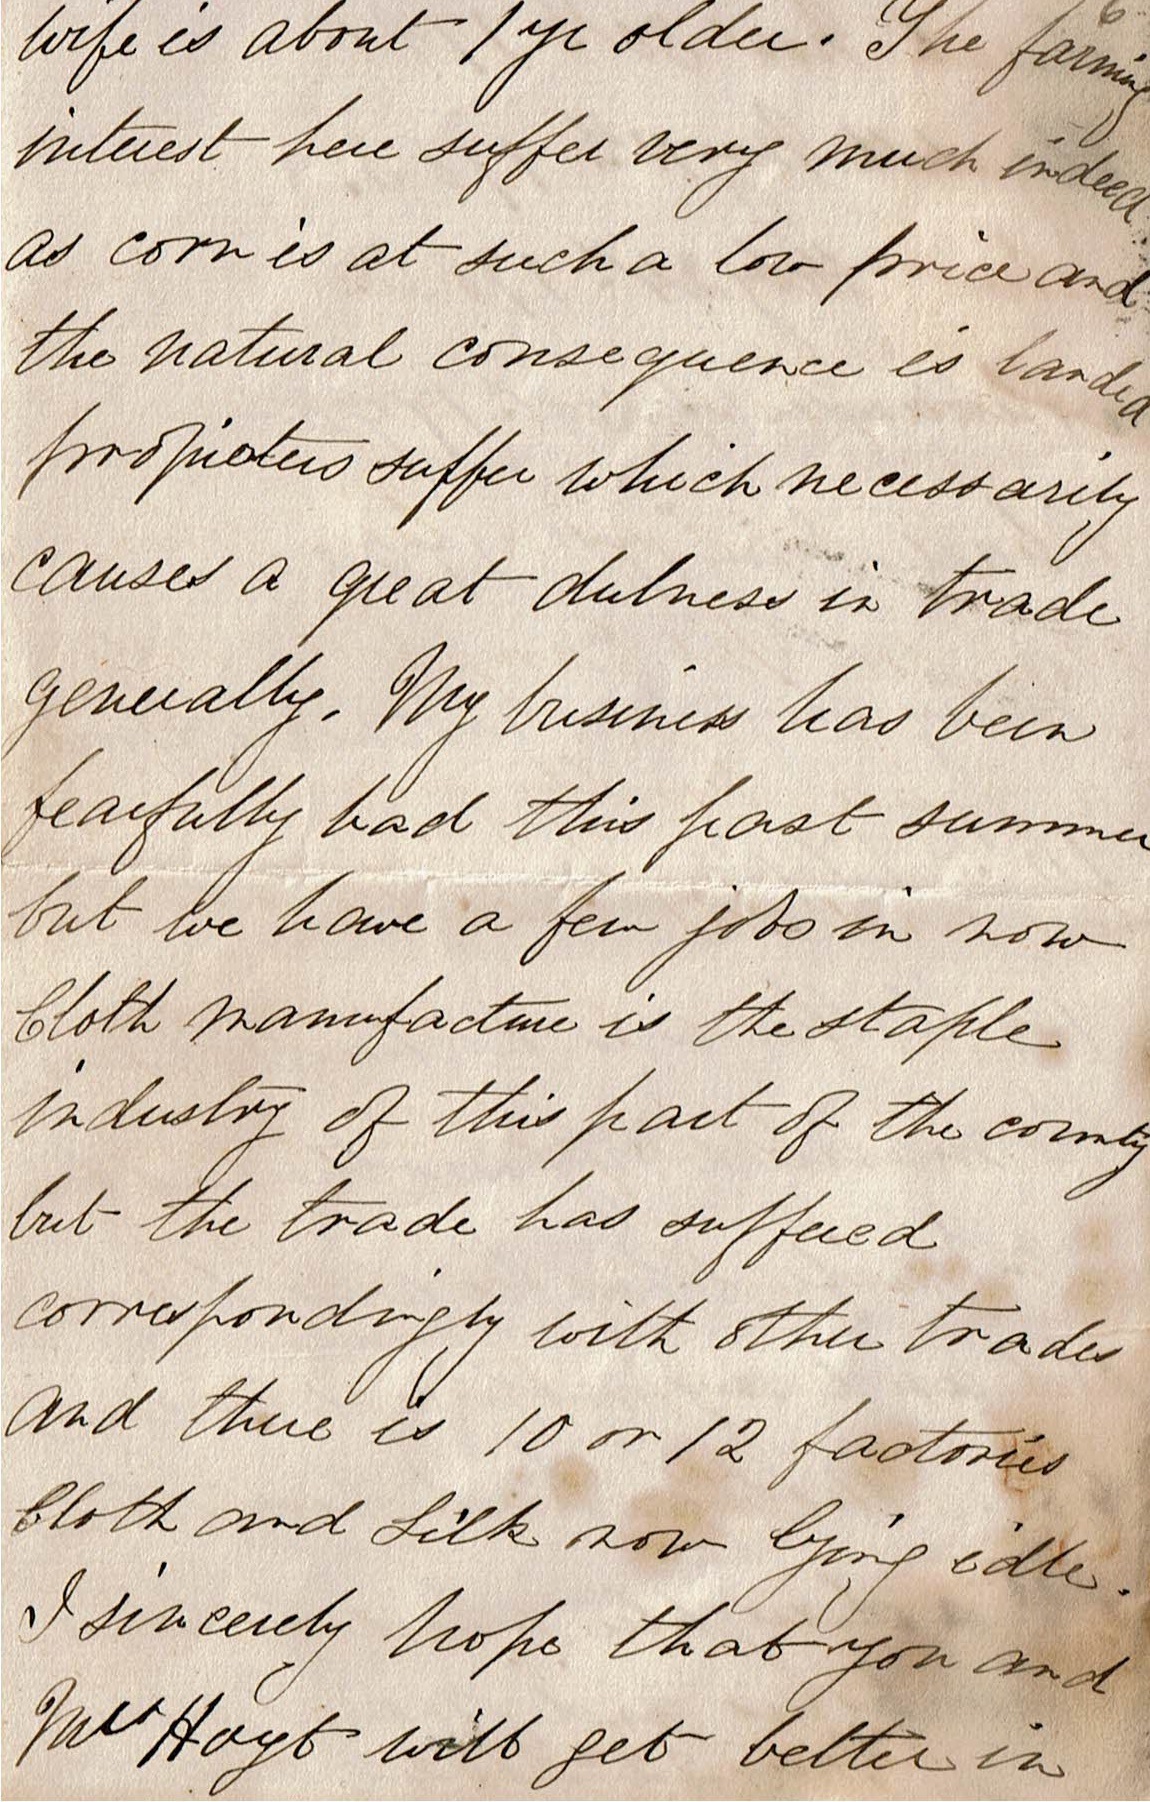 6
wife is about 1 yr older. The farming
interest here suffer very much indeed
as corn is at such a low price and
the natural consequence is landed
propieters suffer which necessarily
causes a great dulness in trade
generally. My business has been
fearfully bad this past summer
but we have a few jobs in now
Cloth manufacture is the staple
industry of this part of the county
but the trade has suffered
correspondingly with other trades
and there is 10 or 12 factories
Cloth and Silk now lying idle.
I sincerely hope that you and
Mrs Hoyt will get better in